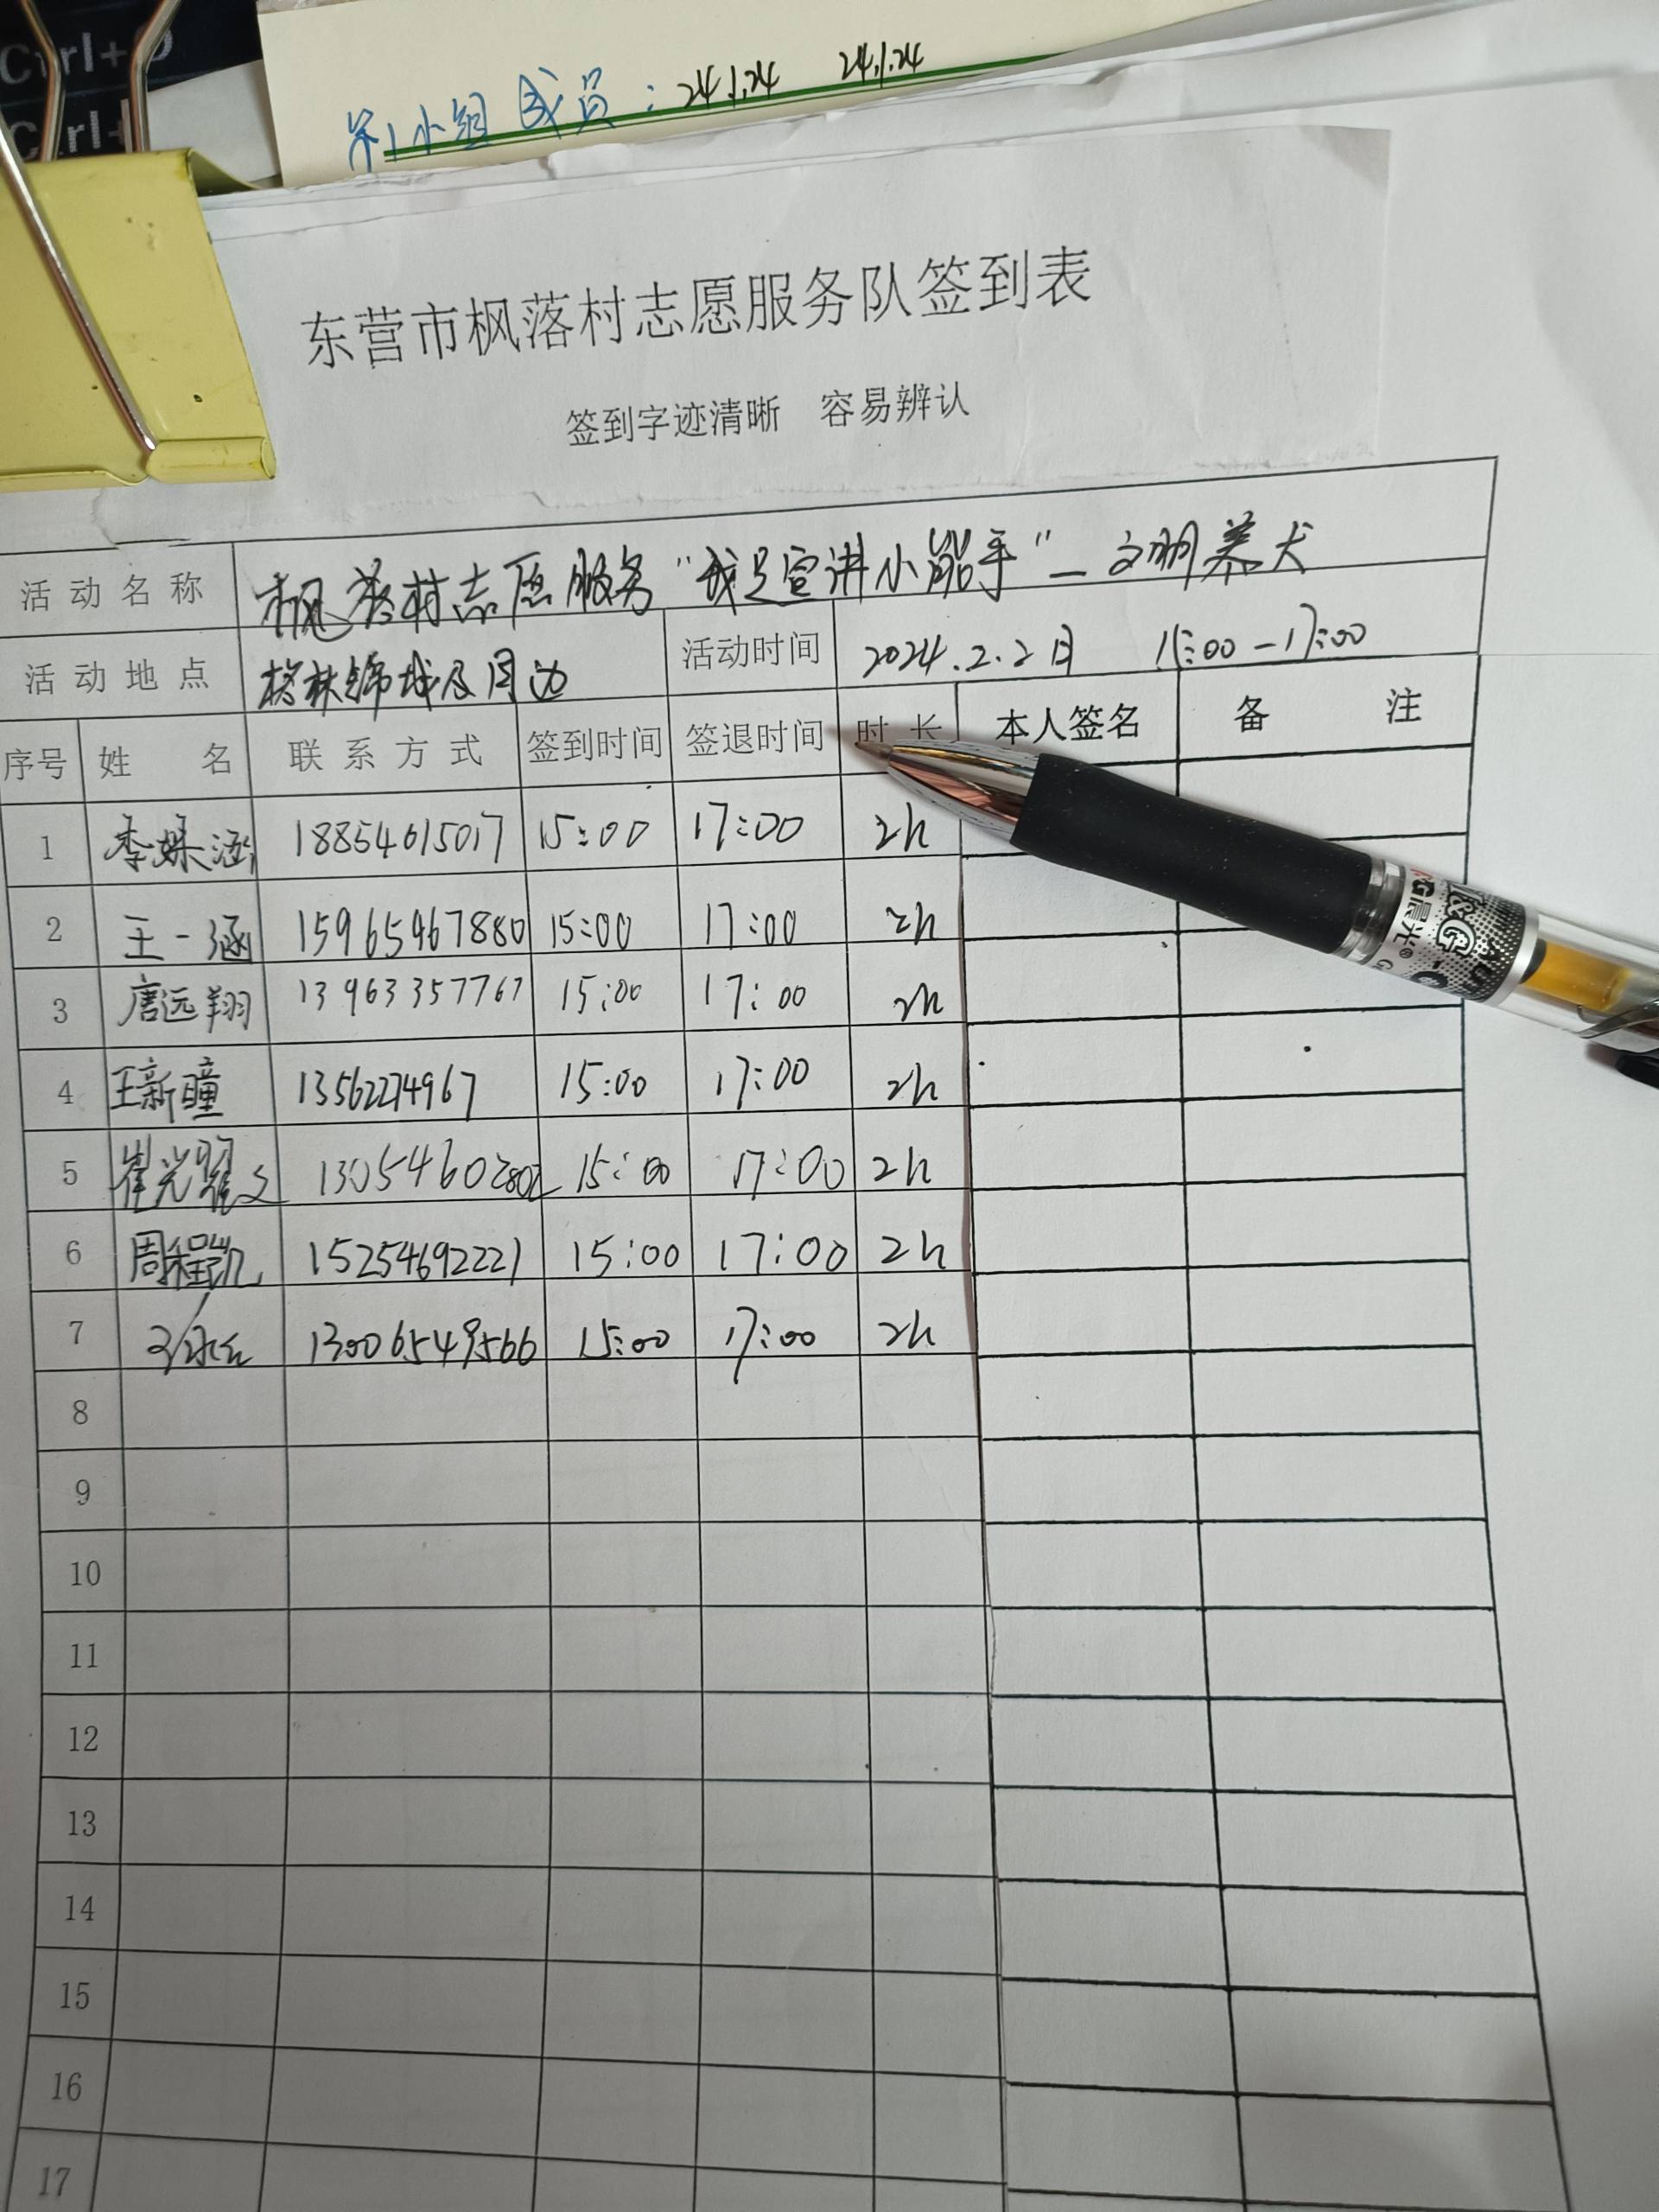 Ctrl+D
Ctrl+
第1小组 成员：24.1.24 24.1.24
东营市枫落村志愿服务队签到表
签到字迹清晰 容易辨认
活动名称 枫落村志愿服务“我是宣讲小能手”—文明养犬
活动地点 锦城及周边 活动时间 2024.2.2日 15:00-17:00
序号 姓 名 联系方式 签到时间 签退时间 时长 本人签名 备 注
1 李姝涵 18854615017 15:00 17:00 2h
2 王一涵 15965467880 15:00 17:00 2h
3 唐远翔 13963357767 15:00 17:00 2h
4 王新瞳 13562274967 15:00 17:00 2h
5 崔光耀文 13054602802 15:00 17:00 2h
6 周程凯 15254692221 15:00 17:00 2h
7 13006549566 15:00 17:00 2h
8
9
10
11
12
13
14
15
16
17
M&G晨光